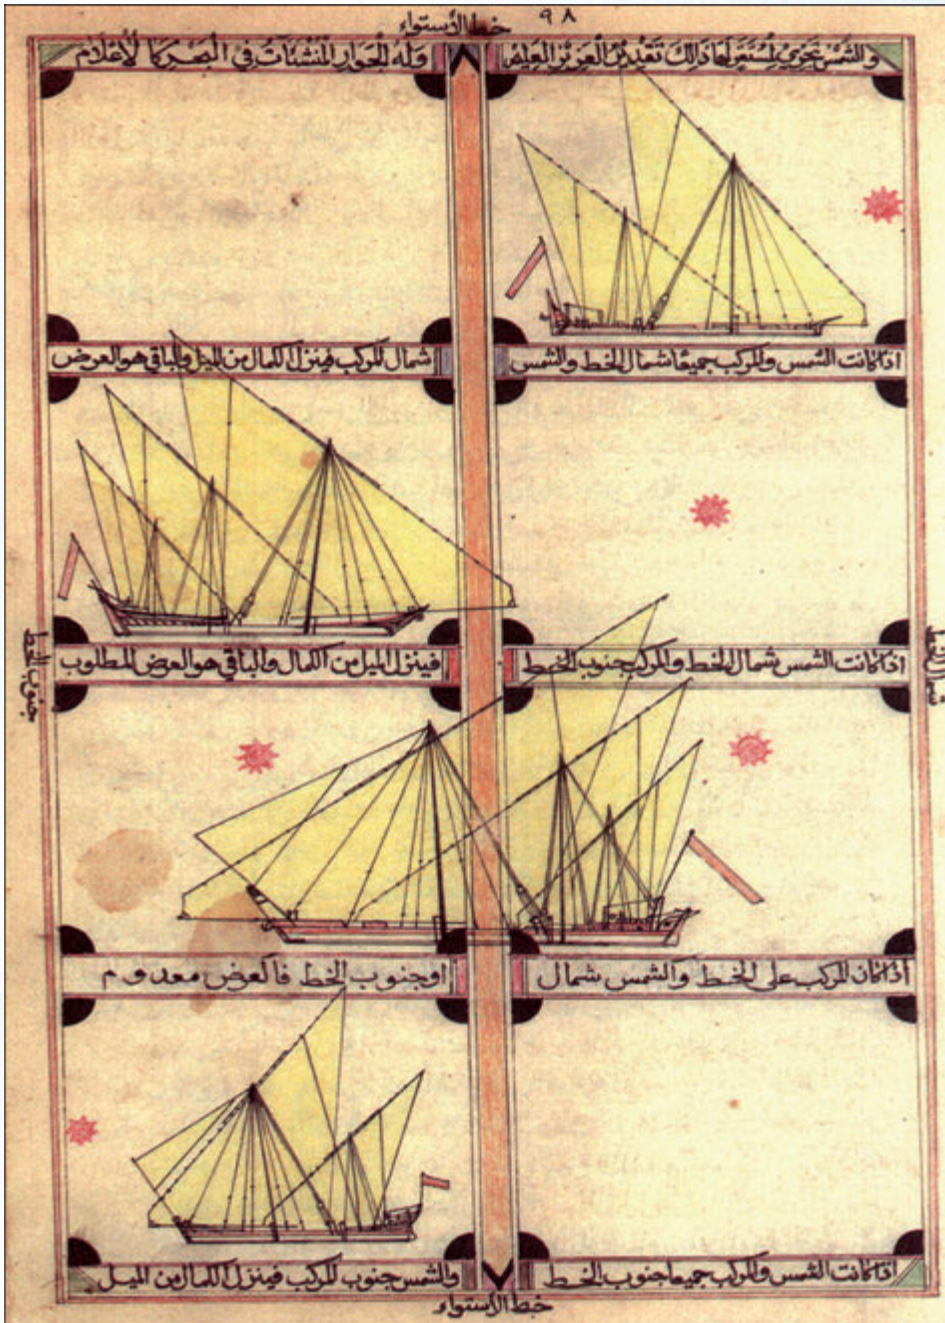 ٩٨
خط الأستواء
والشمس تجري لمستقر لها ذالك تقدير العزيز العليم
وله الجوار المنشئات في البحر كالأعلام
اذا كانت الشمس والمركب جميعًا شمال الخط والشمس
شمال المركب فينزل الكمال من الميل والباقي هو العرض
اذا كانت الشمس شمال الخط والمركب جنوب الخط
فينزل الميل من الكمال والباقي هو العرض المطلوب
شمال الخط
جنوب الخط
أذا كان المركب على الخط والشمس شمال
او جنوب الخط فالعرض معدوم
اذا كانت الشمس والمركب جميعا جنوب الخط
والشمس جنوب المركب فينزل الكمال من الميل
خط الأستواء